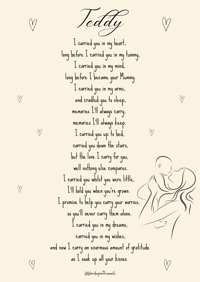 Teddy
I carried you in my heart,
long before I carried you in my tummy,
I carried you in my mind,
long before I became your Mummy.
I carried you in my arms,
and cradled you to sleep,
memories I'll always carry,
memories I'll always keep.
I carried you up to bed,
carried you down the stairs,
but the love I carry for you,
well nothing else compares.
I carried you whilst you were little,
I'll hold you when you're grown.
I promise to help you carry your worries,
so you'll never carry them alone.
I carried you in my dreams,
carried you in my wishes,
and now I carry an enormous amount of gratitude
as I soak up all your kisses.